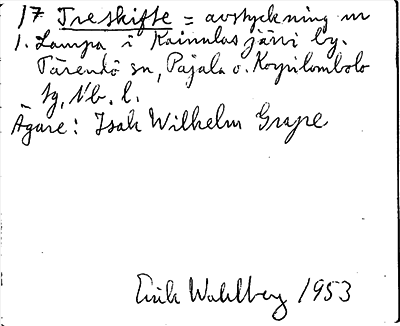 17 Treskifte = avstyckning nr
1. Lampa i Kainulasjärvi by.
Tärendö sn, Pajala o. Korpilombolo
tg, Nb. l.
Ägare: Isak Wilhelm Grape
Erik Wahlberg 1953